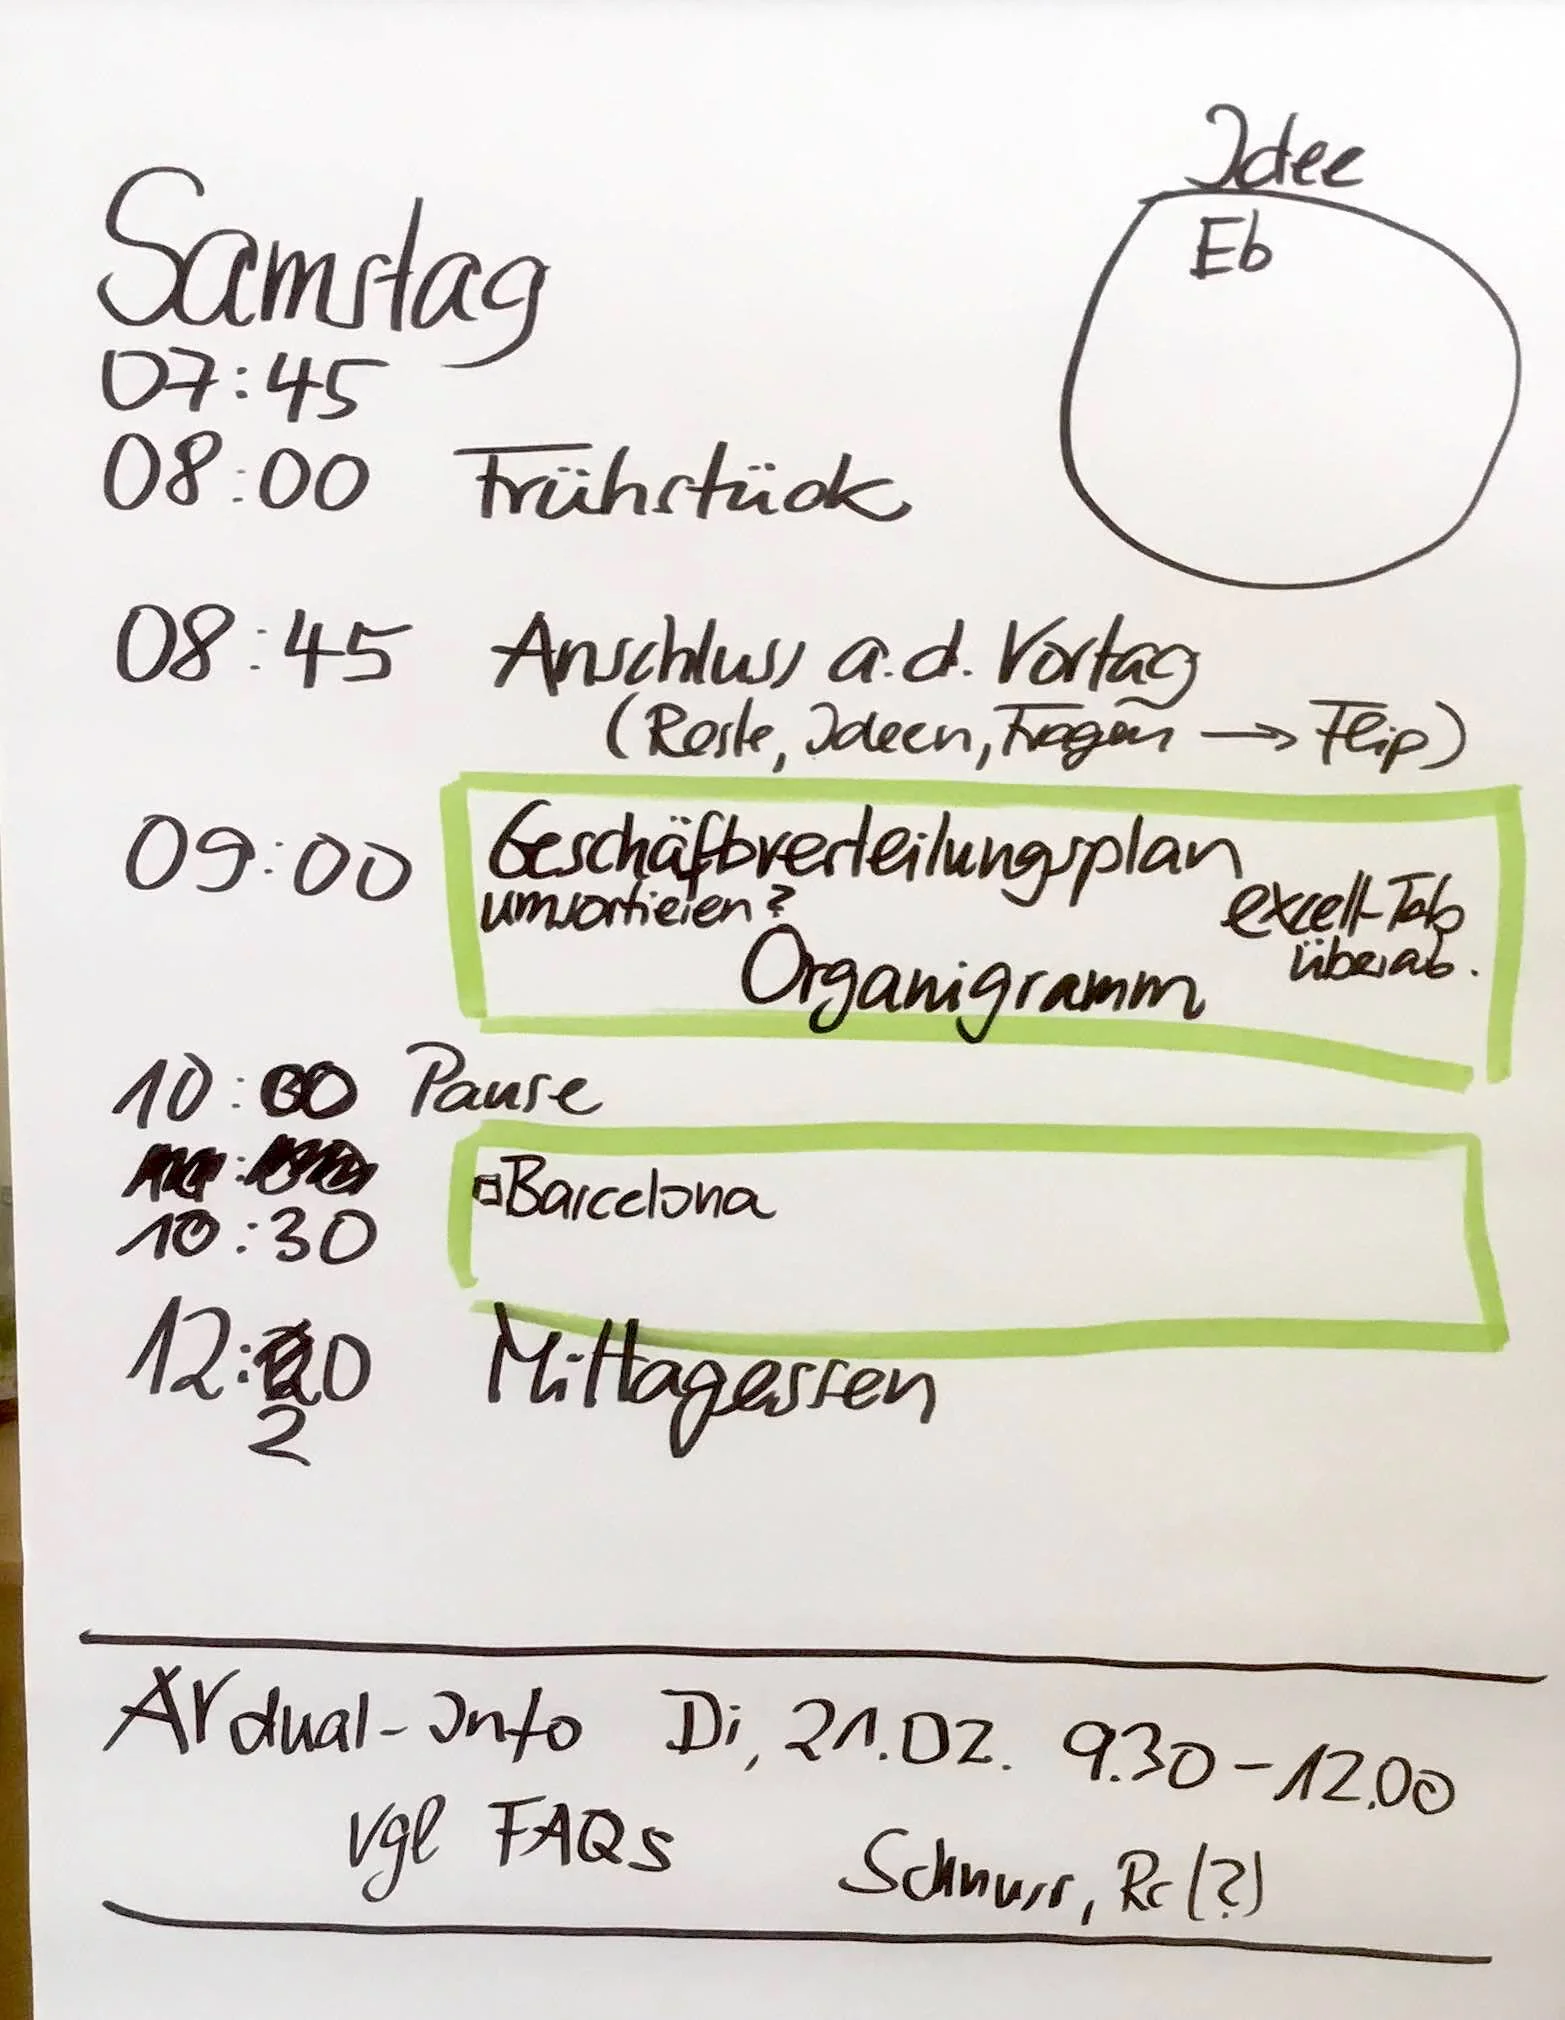 Idee
Eb
Samstag
07:45
08:00 Frühstück
08:45 Anschluss a.d. Vortag
(Reste, Ideen, Fragen → Flip)
09:00 Geschäftsverteilungsplan
umsortieren? excell-Tab
überab.
Organigramm
10:00 Pause
10:30 Barcelona
12:20 Mittagessen
AV dual-Info Di, 21.02. 9.30-12.00
vgl FAQs Schnurr, Rc (?)